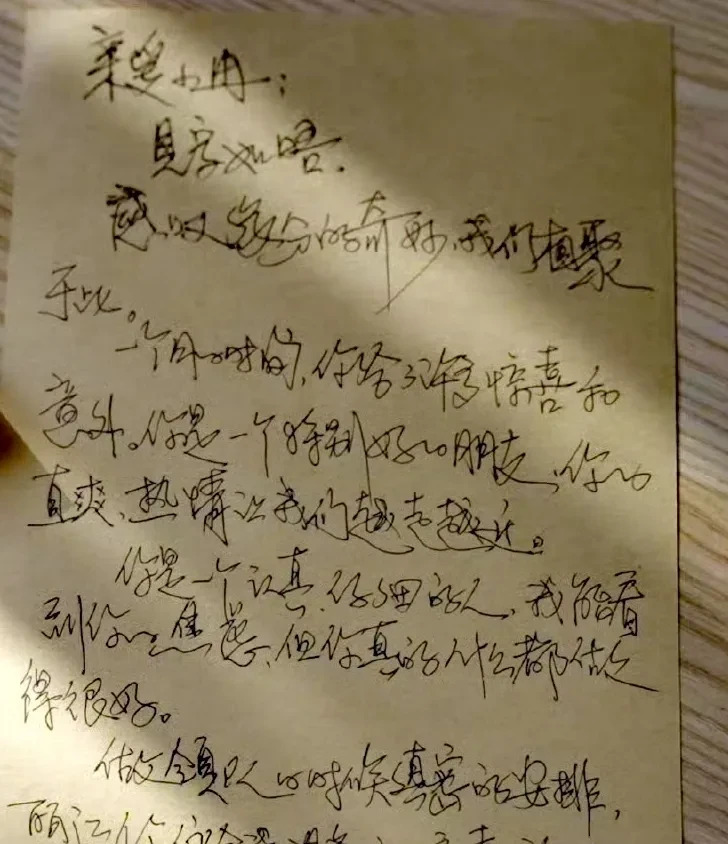 亲爱小冉：
见字如晤。
感叹缘分的奇妙，我们有聚
于此。
一个月的时间，你给了许多惊喜和
意外。你是一个特别好的朋友，你的
直爽、热情让我们越走越近。
你是一个认真、仔细的人，我能看
到你的焦虑，但你真的什么都做
得很好。
做领队的时候缜密的安排，
丽江